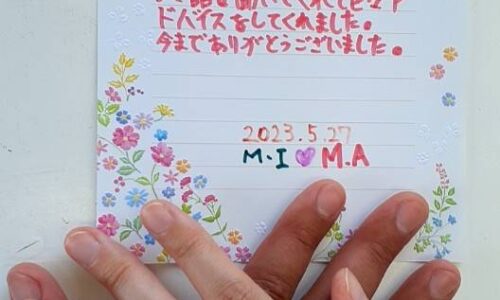 話を聞いてくれてピュア
ドバイスをしてくれました。
今までありがとうございました。
2023.5.27
M・I ♡ M.A